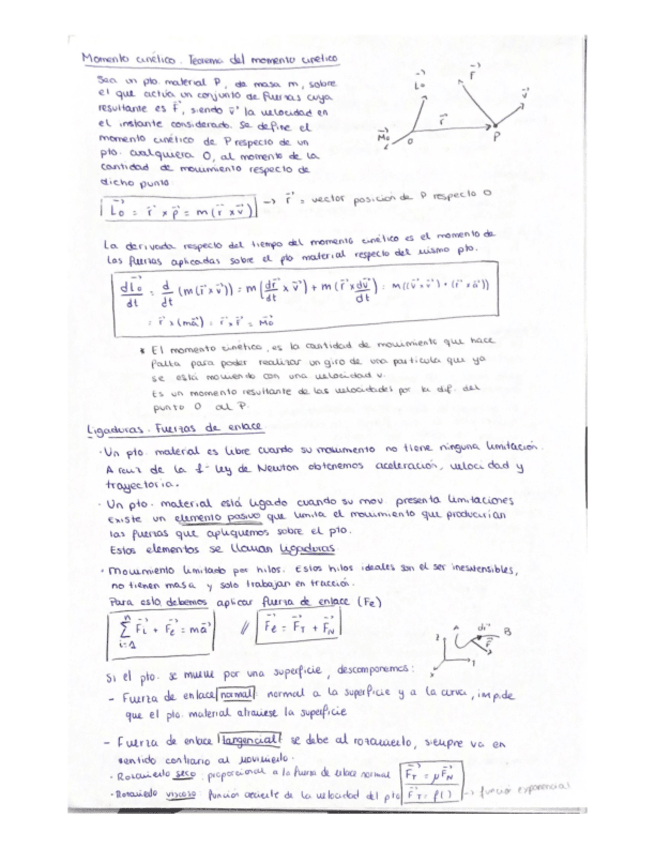 Momento cinético. Teorema del momento cinético
Sea un pto. material P, de masa m, sobre
el que actúa un conjunto de fuerzas cuya
resultante es F⃗, siendo v⃗ la velocidad en
el instante considerado. Se define el
momento cinético de P respecto de un
pto. cualquiera O, al momento de la
cantidad de movimiento respecto de
dicho punto.
L⃗o F⃗ v⃗ r⃗ M⃗o O P
L⃗o = r⃗ x p⃗ = m(r⃗ x v⃗) → r⃗ = vector posición de P respecto O
La derivada respecto del tiempo del momento cinético es el momento de
las fuerzas aplicadas sobre el pto material respecto del mismo pto.
dL⃗o/dt = d/dt (m(r⃗ x v⃗)) = m(dr⃗/dt x v⃗) + m(r⃗ x dv⃗/dt) = m((v⃗ x v⃗) + (r⃗ x a⃗))
= r⃗ x (ma⃗) = r⃗ x F⃗ = M⃗o
* El momento cinético, es la cantidad de movimiento que hace
falta para poder realizar un giro de una partícula que ya
se está moviendo con una velocidad v.
Es un momento resultante de las velocidades por la dif. del
punto O al P.
Ligaduras. Fuerzas de enlace
· Un pto. material es libre cuando su movimiento no tiene ninguna limitación.
A raíz de la 1ª ley de Newton obtenemos aceleración, velocidad y
trayectoria.
· Un pto. material está ligado cuando su mov. presenta limitaciones
Existe un elemento pasivo que limita el movimiento que producirían
las fuerzas que apliquemos sobre el pto.
Estos elementos se llaman ligaduras
· Movimiento limitado por hilos. Estos hilos ideales son el ser inextensibles,
no tienen masa y solo trabajan en tracción.
Para esto debemos aplicar fuerza de enlace (Fe)
n∑i=1 F⃗i + F⃗e = ma⃗ // F⃗e = F⃗T + F⃗N
z A dr⃗ B F⃗ x y
Si el pto. se mueve por una superficie, descomponemos:
- Fuerza de enlace normal: normal a la superficie y a la curva, impide
que el pto. material atraviese la superficie
- Fuerza de enlace tangencial: se debe al rozamiento, siempre va en
sentido contrario al movimiento.
· Rozamiento seco: proporcional a la fuerza de enlace normal F⃗T = μF⃗N
· Rozamiento viscoso: función creciente de la velocidad del pto F⃗T = f( ) → función exponencial